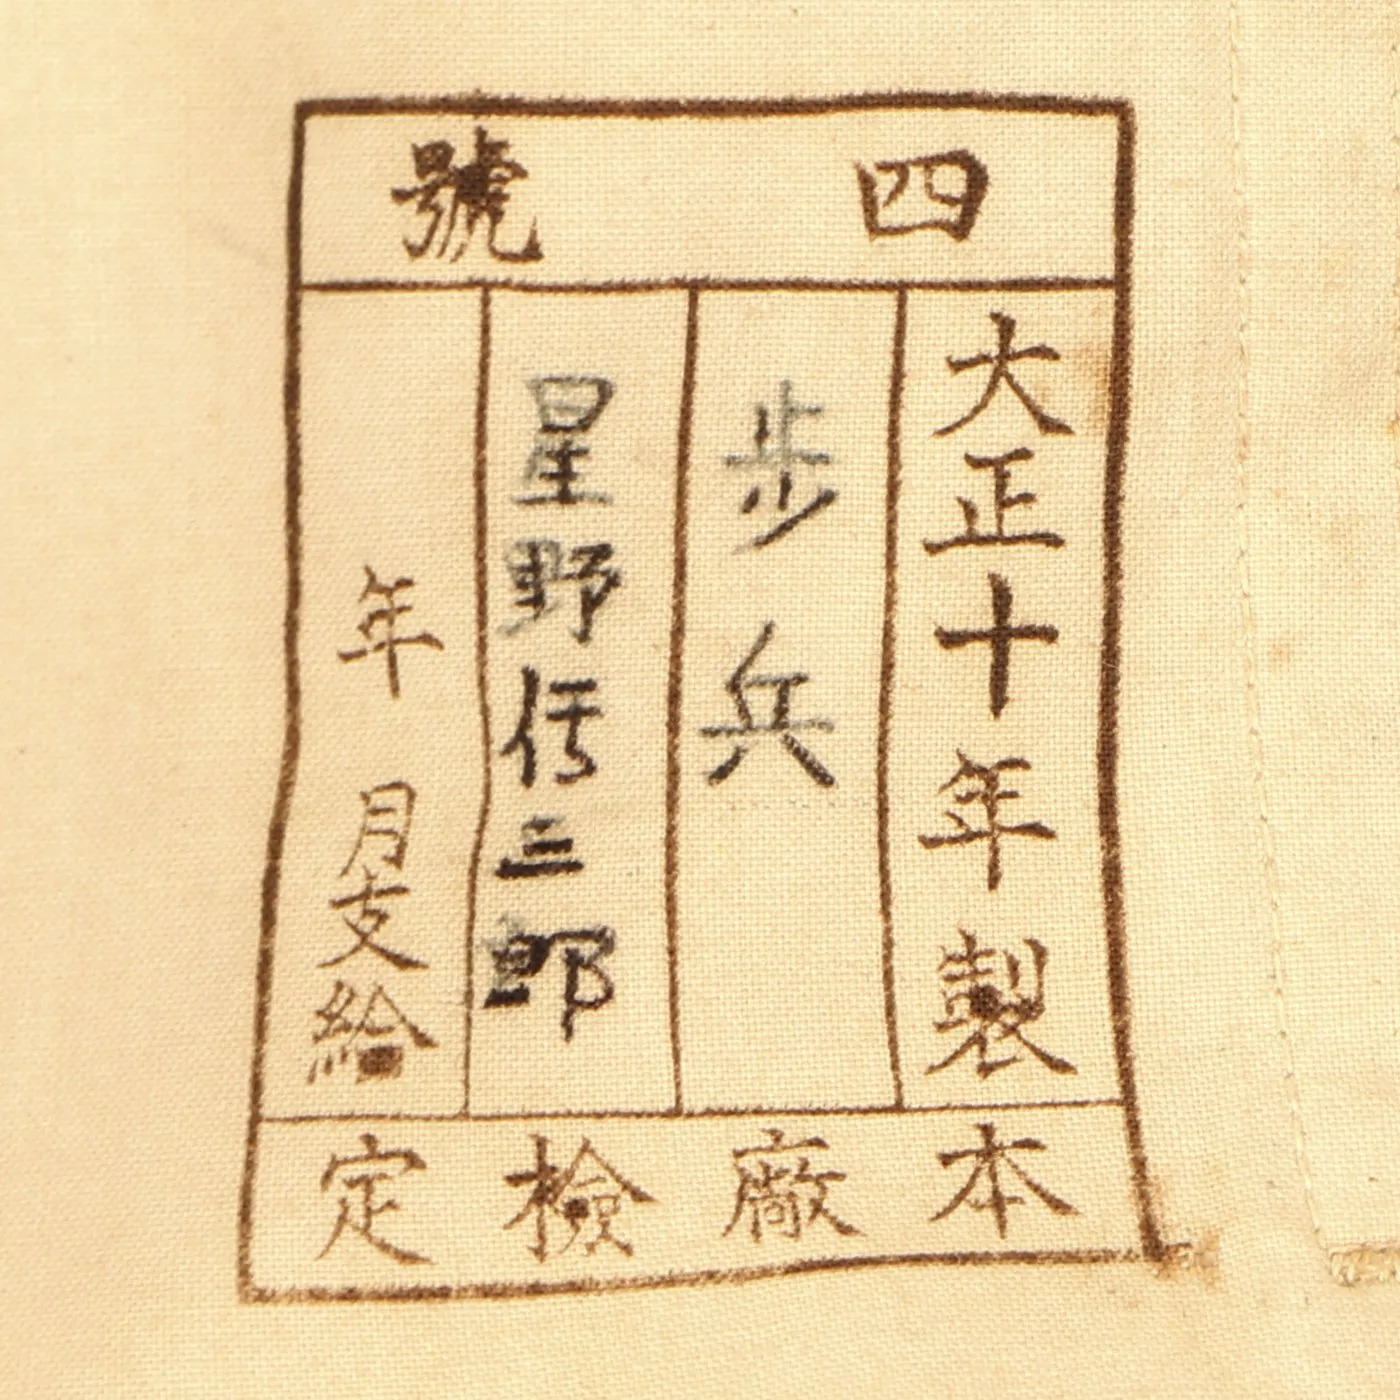 四號
大正十年製
歩兵
星野信三郎
年 月支給
本廠檢定